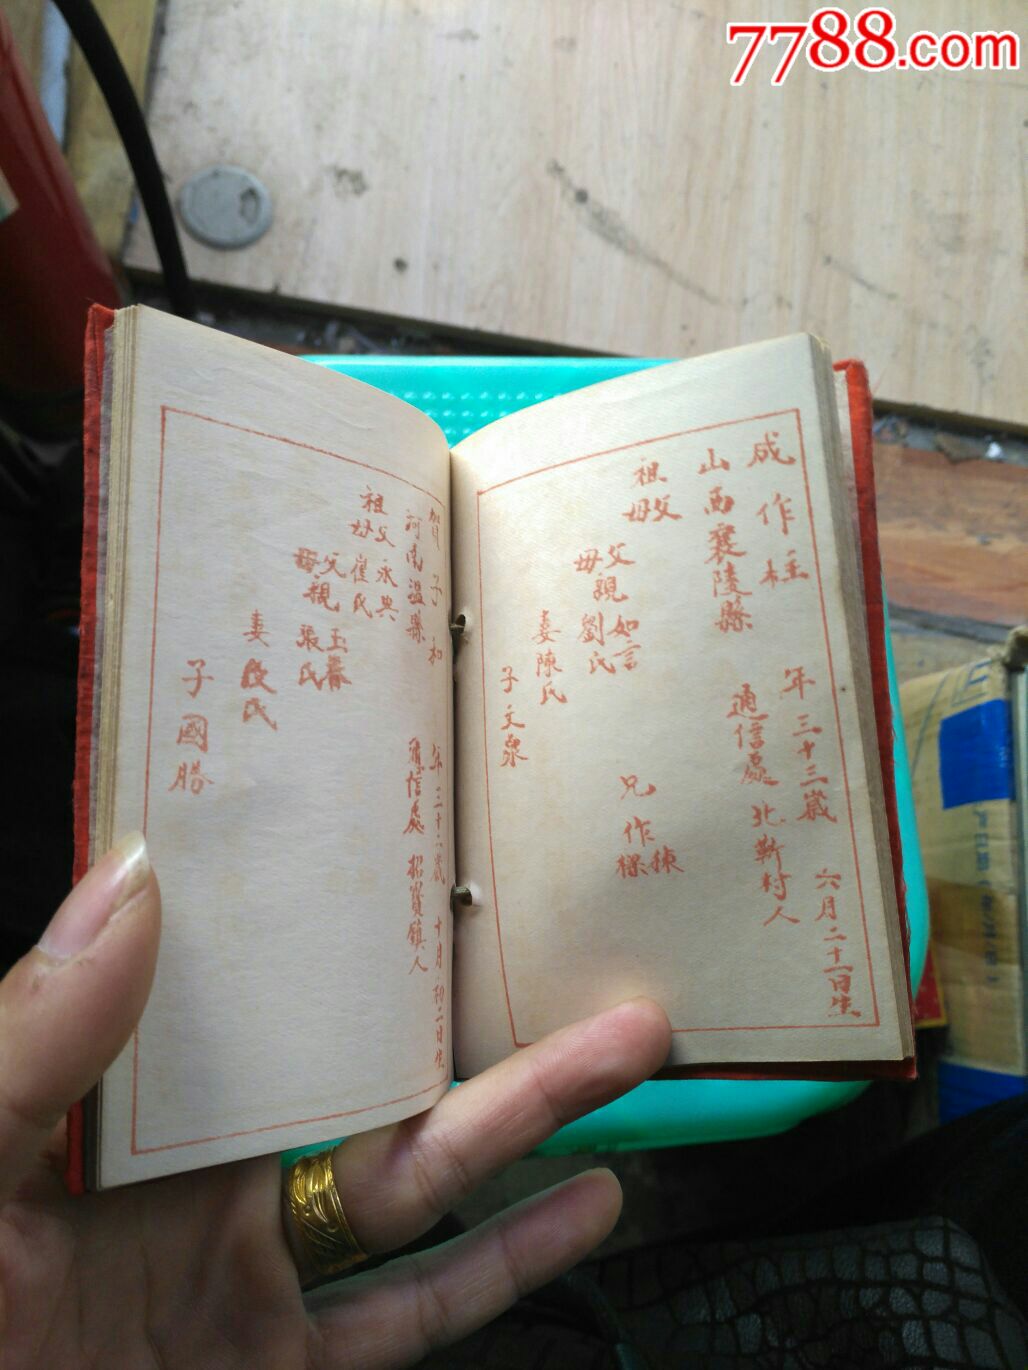 7788.com
成作柱 年三十三歲 六月二十一日生
山西襄陵縣 通信處 北靳村人
祖父母
父親 如言
母親 劉氏
兄 作棟 作樑
妻陳氏
子文泉
賀子和 年三十六歲 十月初二日生
河南溫縣 通信處 招賢鎮人
祖父 永典
祖母 崔氏
父親 玉春
母親 張氏
妻段氏
子國勝